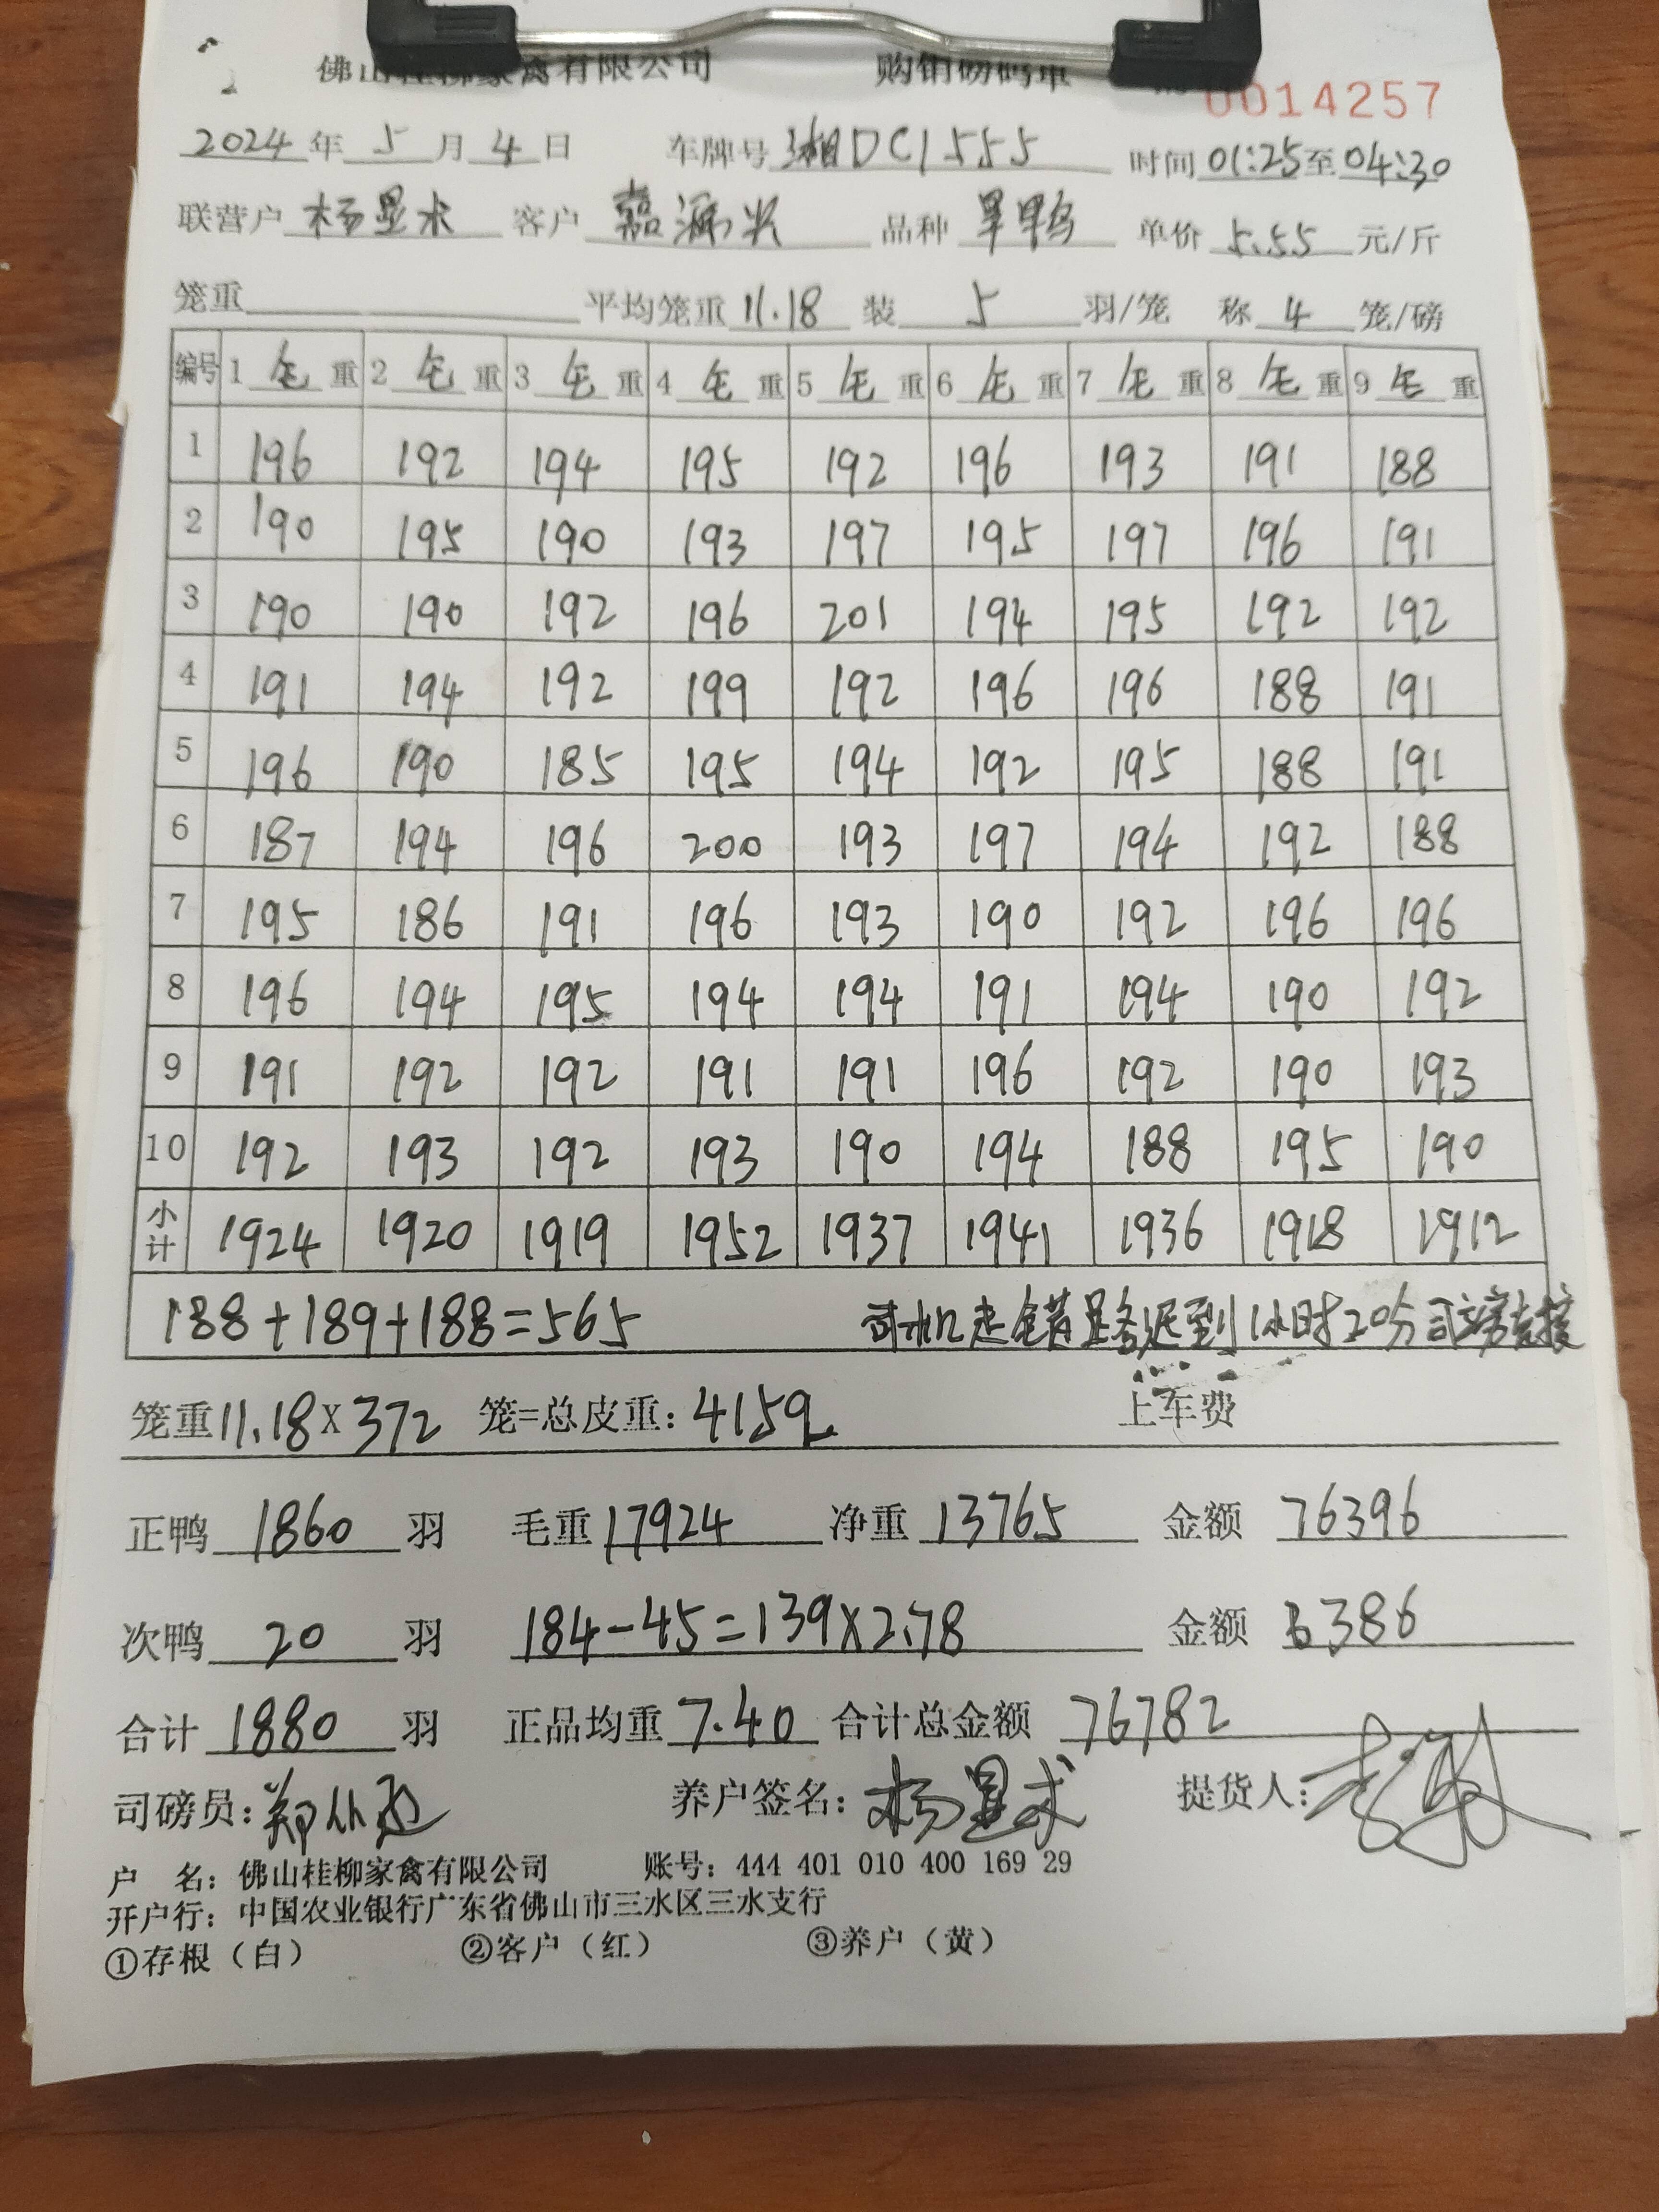 佛山桂柳家禽有限公司 购销磅码单 0014257
2024年5月4日 车牌号 湘DC1555 时间 01:25至04:30
联营户 杨显求 客户 嘉 品种 旱鸭 单价 5.55 元/斤
笼重 平均笼重 11.18 装 5 羽/笼 称 4 笼/磅
编号 1 毛 重 2 毛 重 3 毛 重 4 毛 重 5 毛 重 6 毛 重 7 毛 重 8 毛 重 9 毛 重
1 196 192 194 195 192 196 193 191 188
2 190 195 190 193 197 195 197 196 191
3 190 190 192 196 201 194 195 192 192
4 191 194 192 199 192 196 196 188 191
5 196 190 185 195 194 192 195 188 191
6 187 194 196 200 193 197 194 192 188
7 195 186 191 196 193 190 192 196 196
8 196 194 195 194 194 191 194 190 192
9 191 192 192 191 191 196 192 190 193
10 192 193 192 193 190 194 188 195 190
小计 1924 1920 1919 1952 1937 1941 1936 1918 1912
188+189+188=565 司机走错路迟到1小时20分
笼重11.18X372 笼=总皮重:4159 上车费
正鸭 1860 羽 毛重 17924 净重 13765 金额 76396
次鸭 20 羽 184-45=139X2.78 金额 386
合计 1880 羽 正品均重 7.40 合计总金额 76782
司磅员: 郑 养户签名: 杨显求 提货人: 李
户 名:佛山桂柳家禽有限公司 账号:444 401 010 400 169 29
开户行:中国农业银行广东省佛山市三水区三水支行
①存根(白) ②客户(红) ③养户(黄)